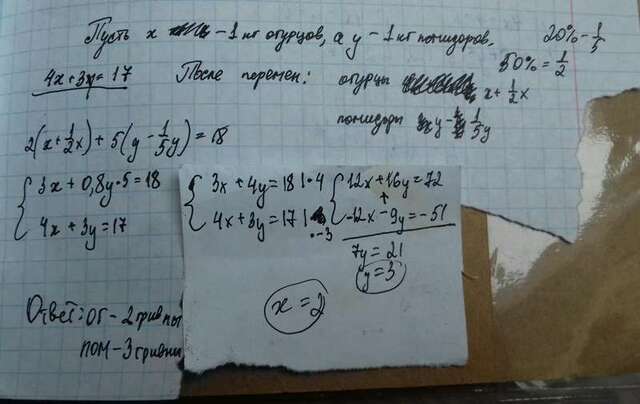 Пусть x - 1 кг огурцов, а y - 1 кг помидоров. 20% - 1/5
50% = 1/2
4x + 3y = 17 После перемен: огурцы x + 1/2x
помидоры y - 1/5y
2(x + 1/2x) + 5(y - 1/5y) = 18
3x + 0,8y·5 = 18
4x + 3y = 17
3x + 4y = 18 | · 4
4x + 3y = 17 | · -3
12x + 16y = 72
+
-12x - 9y = -51
7y = 21
y = 3
x = 2
Ответ: ог - 2 гривны
пом - 3 гривны